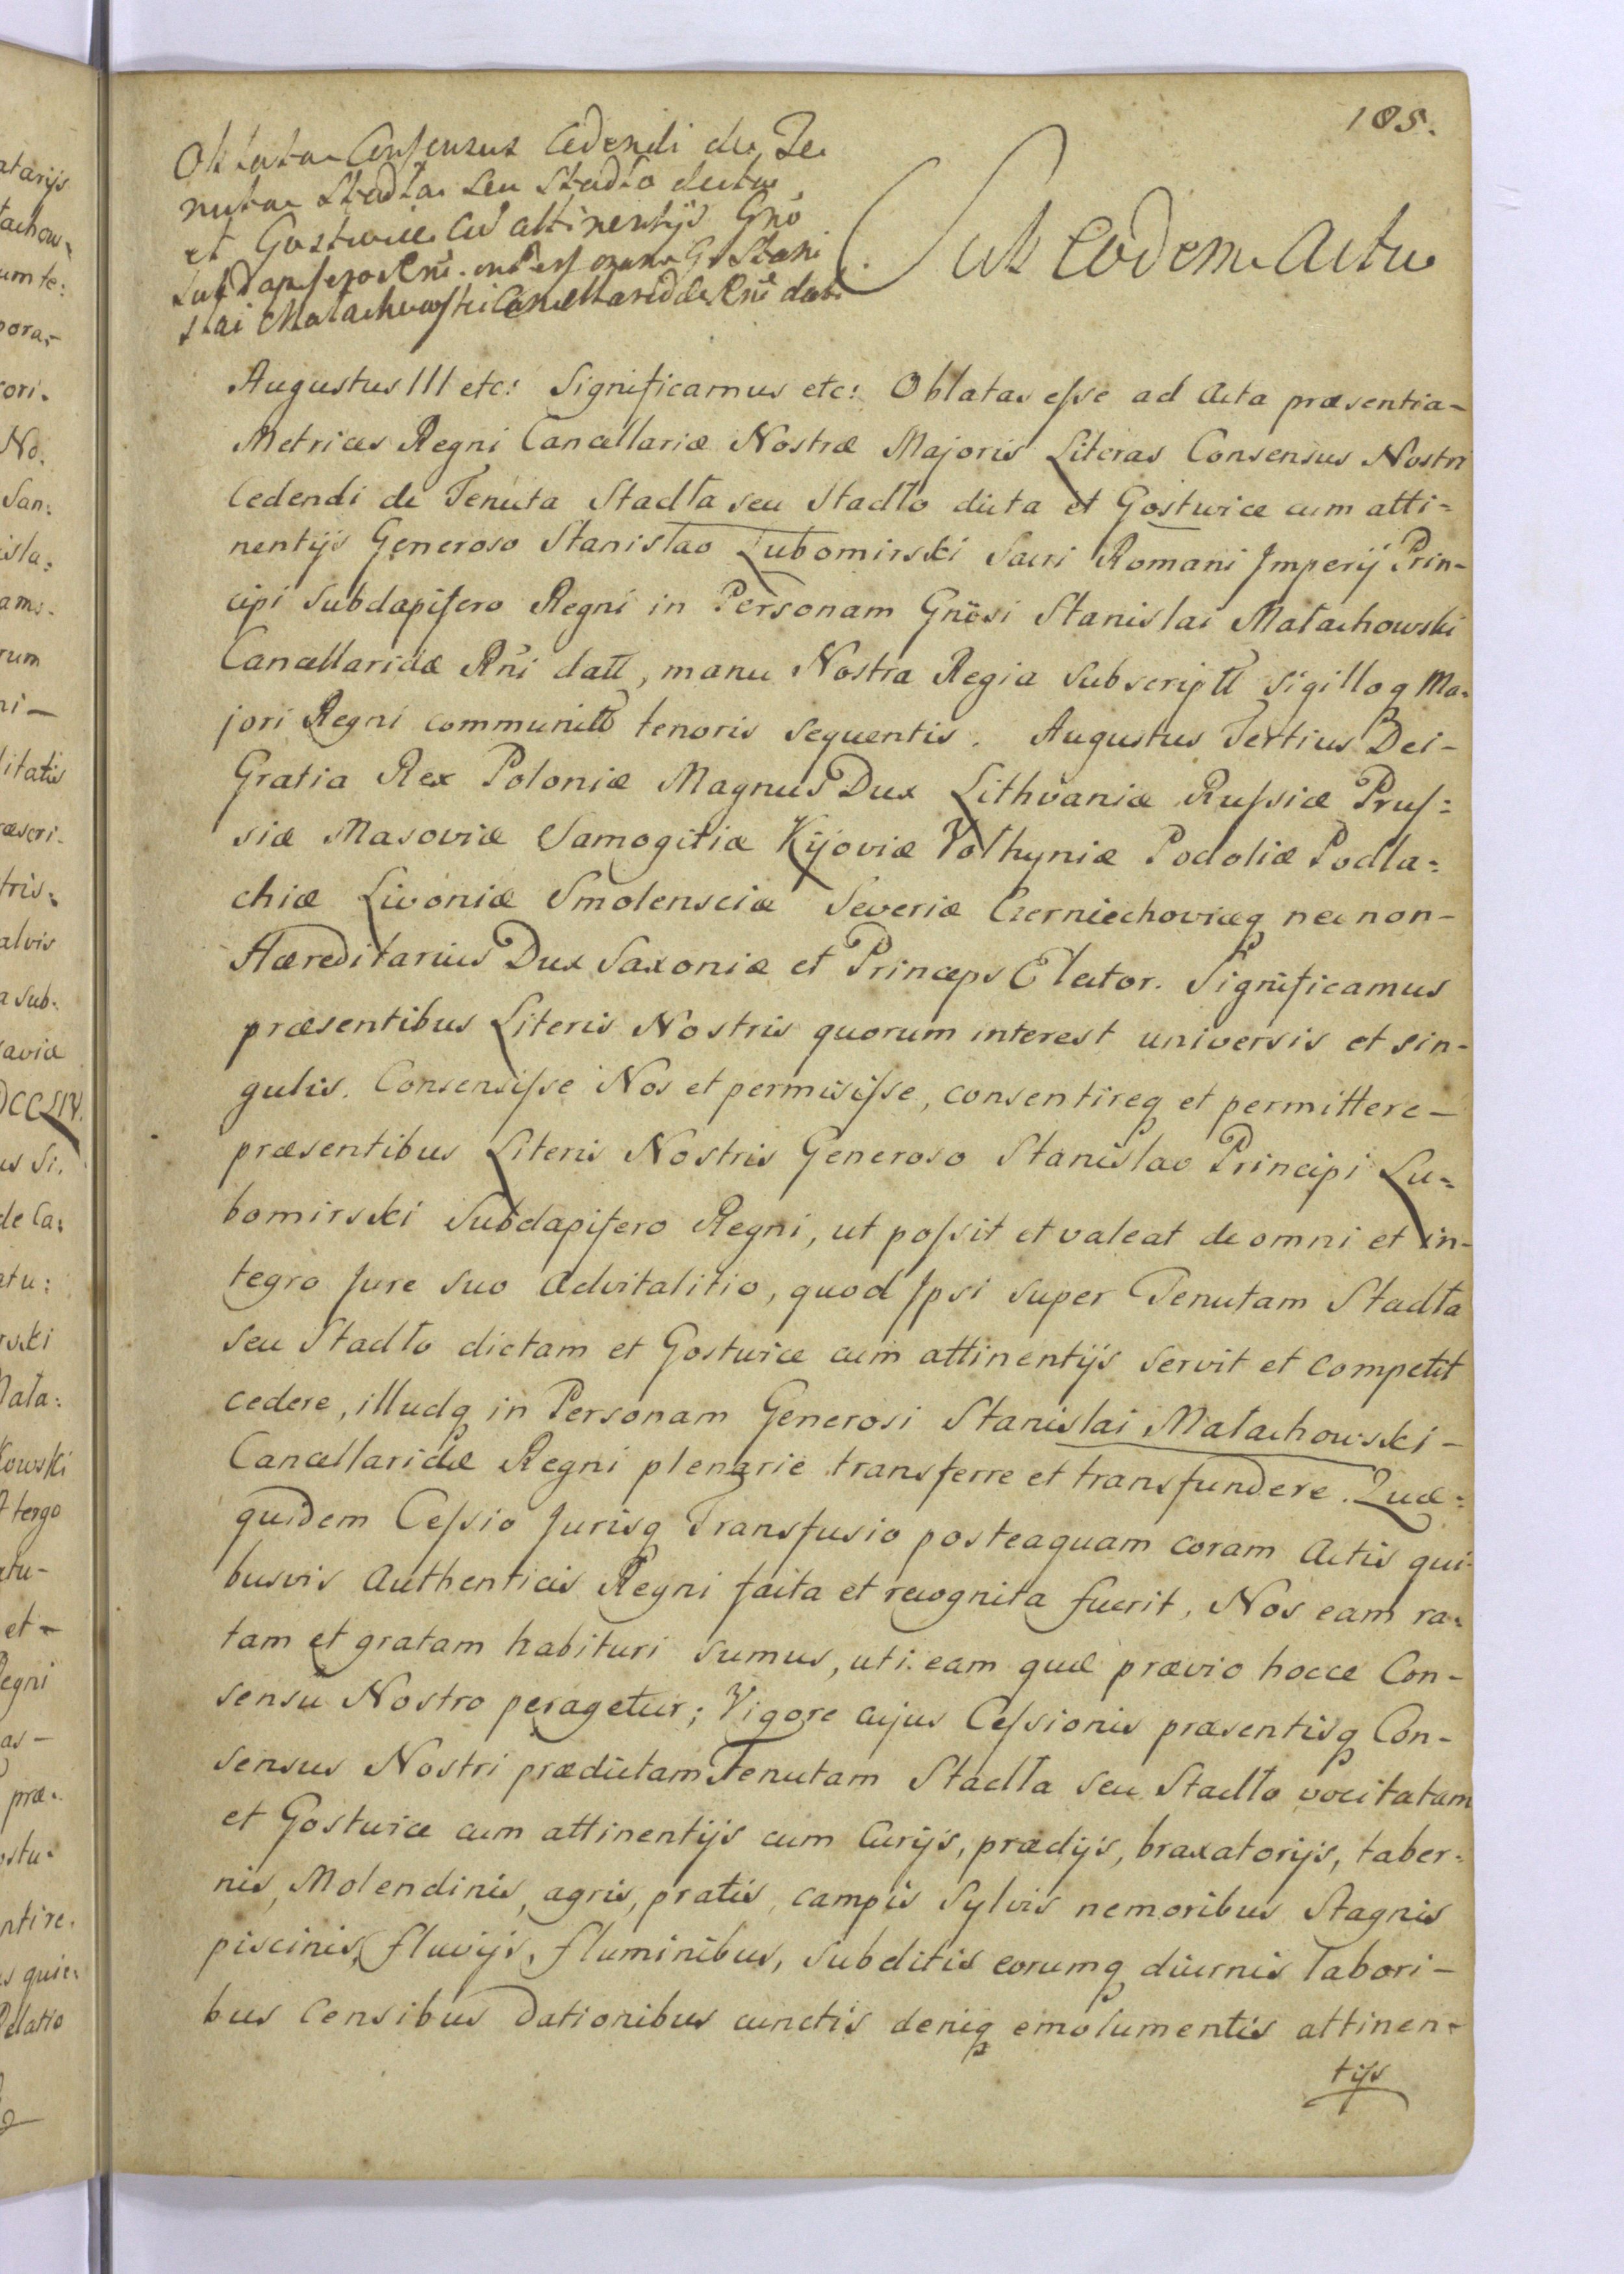 185.
Oblata Consensus Cedendi de Te
nuta Stadła seu Stadło dicta
et Gostwice cum attinentijs Gnō
Subdapifero Rni in Personam G. Stani
slai Małachowski Cancellaridæ Rni dat.
Sub Eodem Actu
Augustus III etc: Significamus etc: Oblatas eſse ad Acta præsentia-
Metrices Regni Cancellariæ Nostræ Majoris Literas Consensus Nostri
Cedendi de Tenuta Stadła seu Stadło dicta et Gostwice cum atti=
nentijs Generoso Stanisłao Lubomirski Sacri Romani Imperij Prin-
cipi Subdapifero Regni in Personam Gnōsi Stanislai Małachowski
Cancellaridæ Rñi datt, manu Nostra Regia Subscriptt Sigilloq Ma-
jori Regni communitt tenoris sequentis. Augustus Tertius Dei-
Gratia Rex Poloniæ Magnus Dux Lithvaniæ Ruſsiæ Pruſ=
siæ Masoviæ Samogitiæ Kijoviæ Volhyniæ Podoliæ Podla=
chiæ Livoniæ Smolensciæ Severiæ Czerniechoviæq necnon-
Hæreditarius Dux Saxoniæ et Princeps Elector. Significamus
præsentibus Literis Nostris quorum interest universis et sin-
gulis. Consensiſse Nos et permisiſse, consentireq et permittere-
præsentibus Literis Nostris Generoso Stanislao Principi Lu=
bomirski Subdapifero Regni, ut poſsit et valeat de omni et in-
tegro Jure suo Advitalitio, quod Ipsi super Tenutam Stadła
seu Stadło dictam et Gostwice cum attinentijs servit et competit
cedere, illudq in Personam Generosi Stanislai Małachowski-
Cancellaridæ Regni plenarie transferre et transfundere. Quæ=
quidem Ceſsio Jurisq Transfusio posteaquam coram Actis qui-
busvis Authenticis Regni facta et recognita fuerit, Nos eam ra-
tam et gratam habituri sumus, uti eam quæ prævio hocce Con-
sensu Nostro peragetur; Vigore cujus Ceſsionis præsentisq Con-
sensus Nostri prædictam Tenutam Stadła seu Stadło vocitatam
et Gostwice cum attinentijs cum Curijs, prædijs, braxatorijs, taber-
nis, Molendinis, agris, pratis, campis Sylvis nemoribus Stagnis
piscinis, fluvijs, fluminibus, subditis eorumq diurnis labori-
bus Censibus Dationibus cunctis deniq emolumentis attinen-
tijs